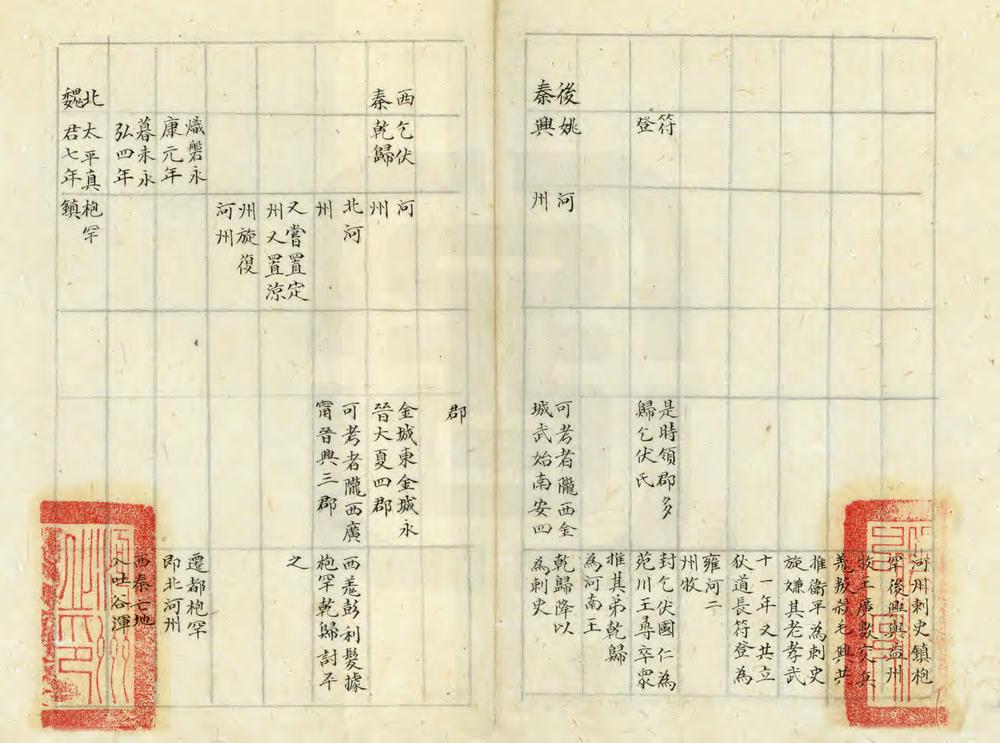 河州刺史鎮枹
罕後興與益州
牧王廣數交兵
羌叛殺毛興共
推衛平為刺史
旋嫌其老孝武
十一年又共立
狄道長符登為
符
登
是時領郡多
歸乞伏氏
雍河二
州牧
封乞伏國仁為
苑川王尋卒眾
推其弟乾歸
為河南王
後
秦
姚
興
河
州
可考者隴西金
城武始南安四
乾歸降以
為刺史
郡
西
秦
乞伏
乾歸
河
州
金城東金城永
晉大夏四郡
北河
州
可考者隴西廣
甯晉興三郡
西羗彭利髮據
枹罕乾歸討平
又嘗置定
州又置涼
之
州旋復
河州
熾磐永
康元年
遷都枹罕
即北河州
暮末永
弘四年
西秦亡地
入吐谷渾
北
魏
太平真
君七年
枹罕
鎮